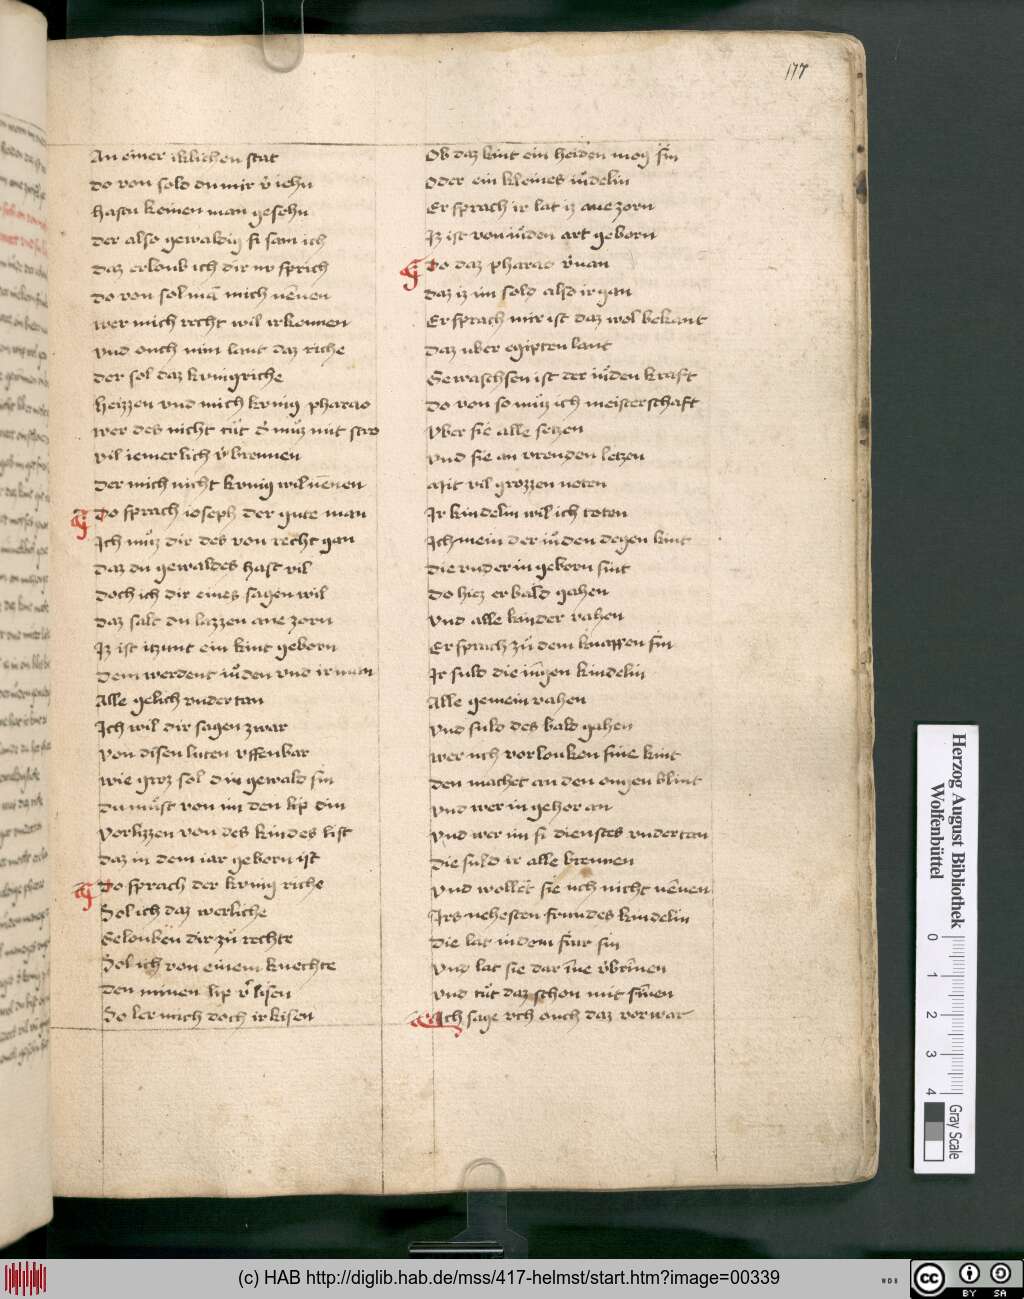 177
An einer iklichen stat
Do von solo du mir v̾ iehn
Hastu keinen man gesehn
Der also gewaldig si sam ich
Daz erloub ich dir nv sprich
Do von sol mā mich nēnen
Wer mich recht wil irkennen
Vnd ouch min lant daz riche
Der sol daz kvnigriche
Heizzen vnd mich kvnig pharao
Wer des nicht tůt d̾ můz mit stro
Vil iemerlich v̾brennen
Der mich nicht kvnig wil nēnen
Do sprach ioseph der gute man
Ich můz dir des von recht gan
Daz du gewaldes hast vil
Doch ich dir eines sagen wil
Daz salt du lazzen ane zorn
Iz ist itzunt ein kint geborn
Dem werdent iůden vnd ir man
Alle gelich vndertan
Ich wil dir sagen zwar
Von disen luten vffenbar
Wie groz sol din gewald sin
Du můst von im den lip din
Vorlizzen von des kindes list
Daz in dem iar geborn ist
Do sprach der kvnig riche
Sol ich daz werliche
Gelouben dir zů rechte
Sol ich von einem knechte
Den minen lip v̾lisen
So ler mich doch irkisen
Ob daz kint ein heiden mog sin
Oder ein kleines iůdelin
Er sprach ir lat iz ane zorn
Iz ist von iůden art geborn
Do daz pharao v̾nan
Daz iz im sold also irgan
Er sprach mir ist daz wol bekant
Daz vber egipten lant
Gewaschsen ist der iůden kraft
Do von so můz ich meisterschaft
Vber sie alle setzen
Vnd sie an vrenden letzen
Mit vil grozzen noten
Ir kindelin wil ich toten
Ich mein der iůden degen kint
Die vnder in geborn sint
Do hiez er bald gahen
Vnd alle kinder vahen
Er sprach zů dem knappen sin
Ir suld die iūgen kindelin
Alle gemein vahen
Vnd suld des bald gahen
Wer uch vorlouken sine kint
Den machet an den ougen blint
Vnd wer in gehor an
Vnd wer im si dienstes vndertan
Die suld ir alle brennen
Vnd wollet sie uch nicht nēnen
Irs nehesten frundes kindelin
Die lat in dem fiur sin
Vnd lat sie dar īne v̾brīnen
Vnd tůt daz schon mit sīnen
Ich sage vch ouch daz vorwar
Herzog August Bibliothek
Wolfenbüttel
0 1 2 3 4
Gray Scale
(c) HAB http://diglib.hab.de/mss/417-helmst/start.htm?image=00339
WDB
CC BY SA